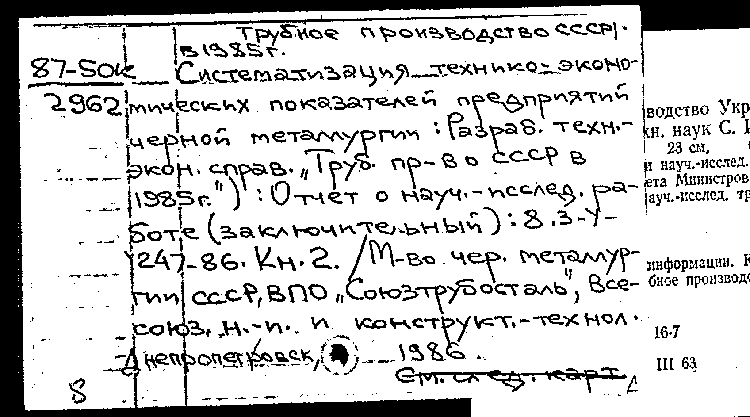 Трубное производство СССР
в 1985г.
87-50к Систематизация технико-эконо-
2962 мических показателей предприятий
черной металлургии : (Разраб. техн.-
экон. справ. „Труб. пр-во СССР в
1985г.") : Отчет о науч.-исслед. ра-
боте (заключительный) : 8.3-У-
1247-86. Кн. 2. / М-во чер. металлур-
гии СССР, ВПО „Союзтрубосталь", Все-
союз. н.-и. и конструкт.-технол.
Днепропетровск, 1986.
См. след. карт.
8
водство Укр
наук С.
23 см,
науч.-исслед.
Министров
науч.-исслед. тр
информации. К
бное производс
16-7
III 63